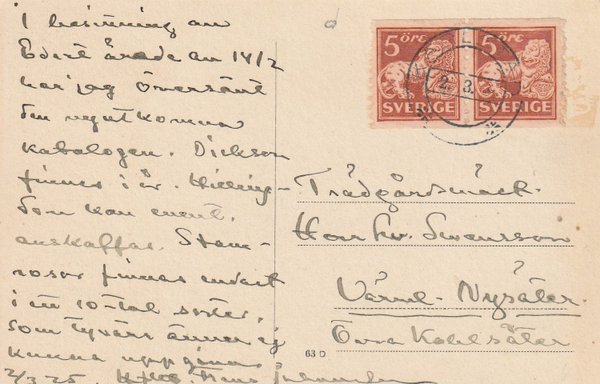 I besittning av
Edert ärade av 14/2
har jag översänt
den nyutkomna
katalogen. Dickson
finnes i år. Hilling-
som kan event.
anskaffas. Stam-
rosor finnes endast
i ett 10-tal sorter,
som tyvärr ännu ej
kunna uppgivas.
2/3 25.
5 ÖRE 5 ÖRE
SVERIGE SVERIGE
2. 3.
Trädgårdsmäst.
Herr Hv. Swensson
Värml-Nysäter.
63 D